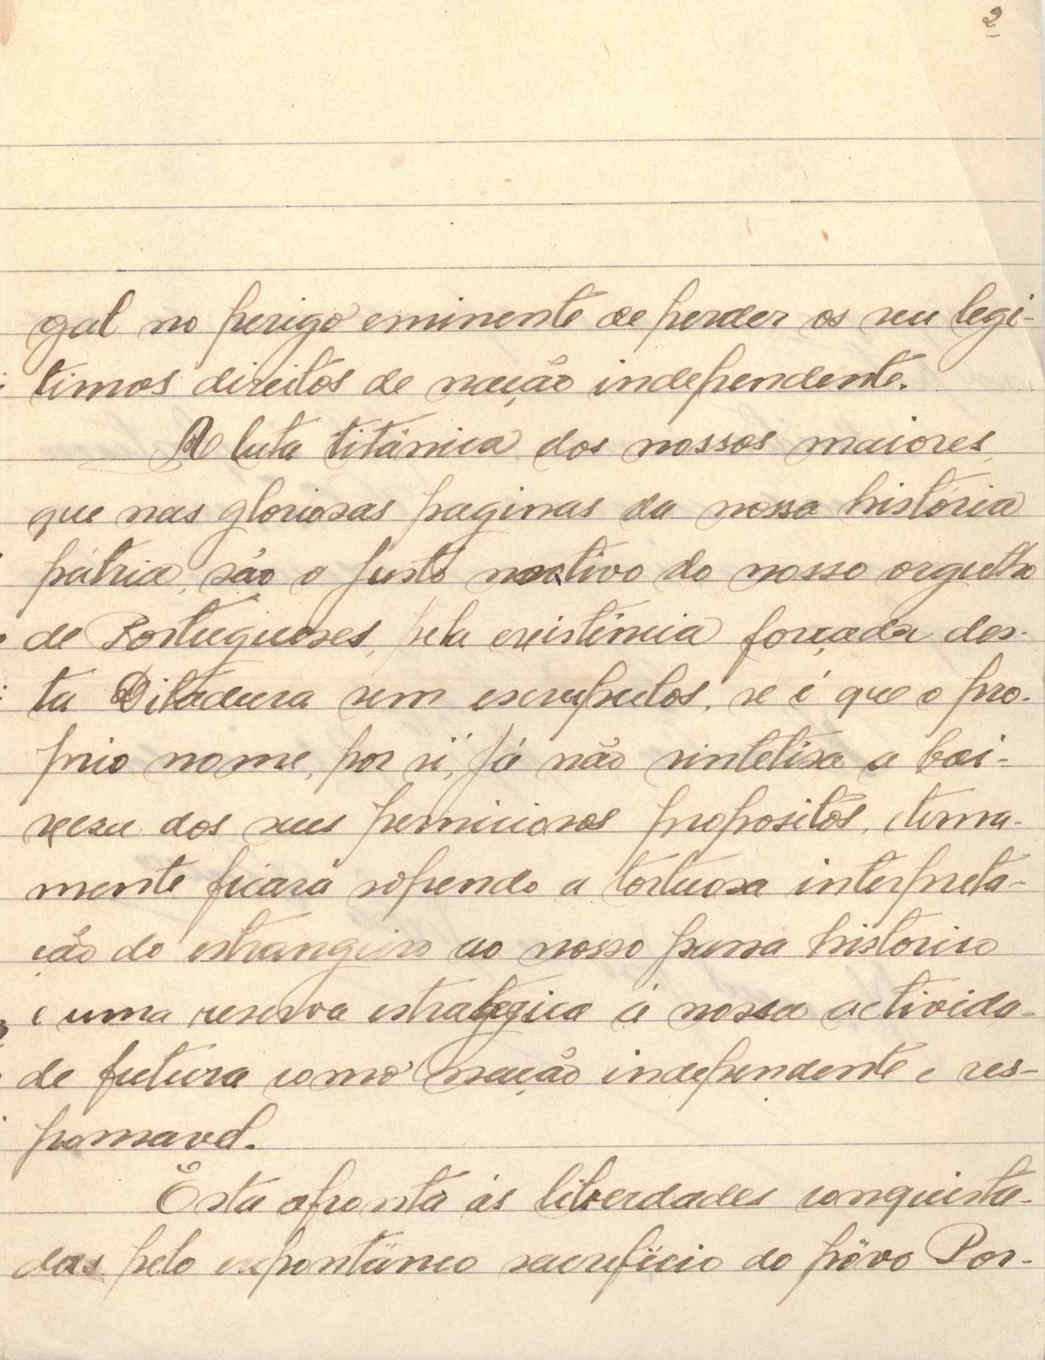 2
gal no perigo eminente de perder os seu legi-
timos direitos de nação independente.
A luta titánica dos nossos maiores
que nas gloriosas paginas da nossa história
pátria, são o justo motivo do nosso orgulho
de Portugueses, pela existência forçada des-
ta Ditadura sem escrupulos, se é que o pro-
prio nome, por si, já não sintetisa a bai-
xesa dos seus perniciosos propositos,
mente ficará sofrendo a tortuosa interpreta-
ção do estrangeiro ao nosso passa historico
e uma reserva estrategica á nossa activida-
de futura como nação independente e res-
ponsavel.
Ésta afronta ás liberdades conquista-
das pelo espontâneo sacrificio do pôvo Por-